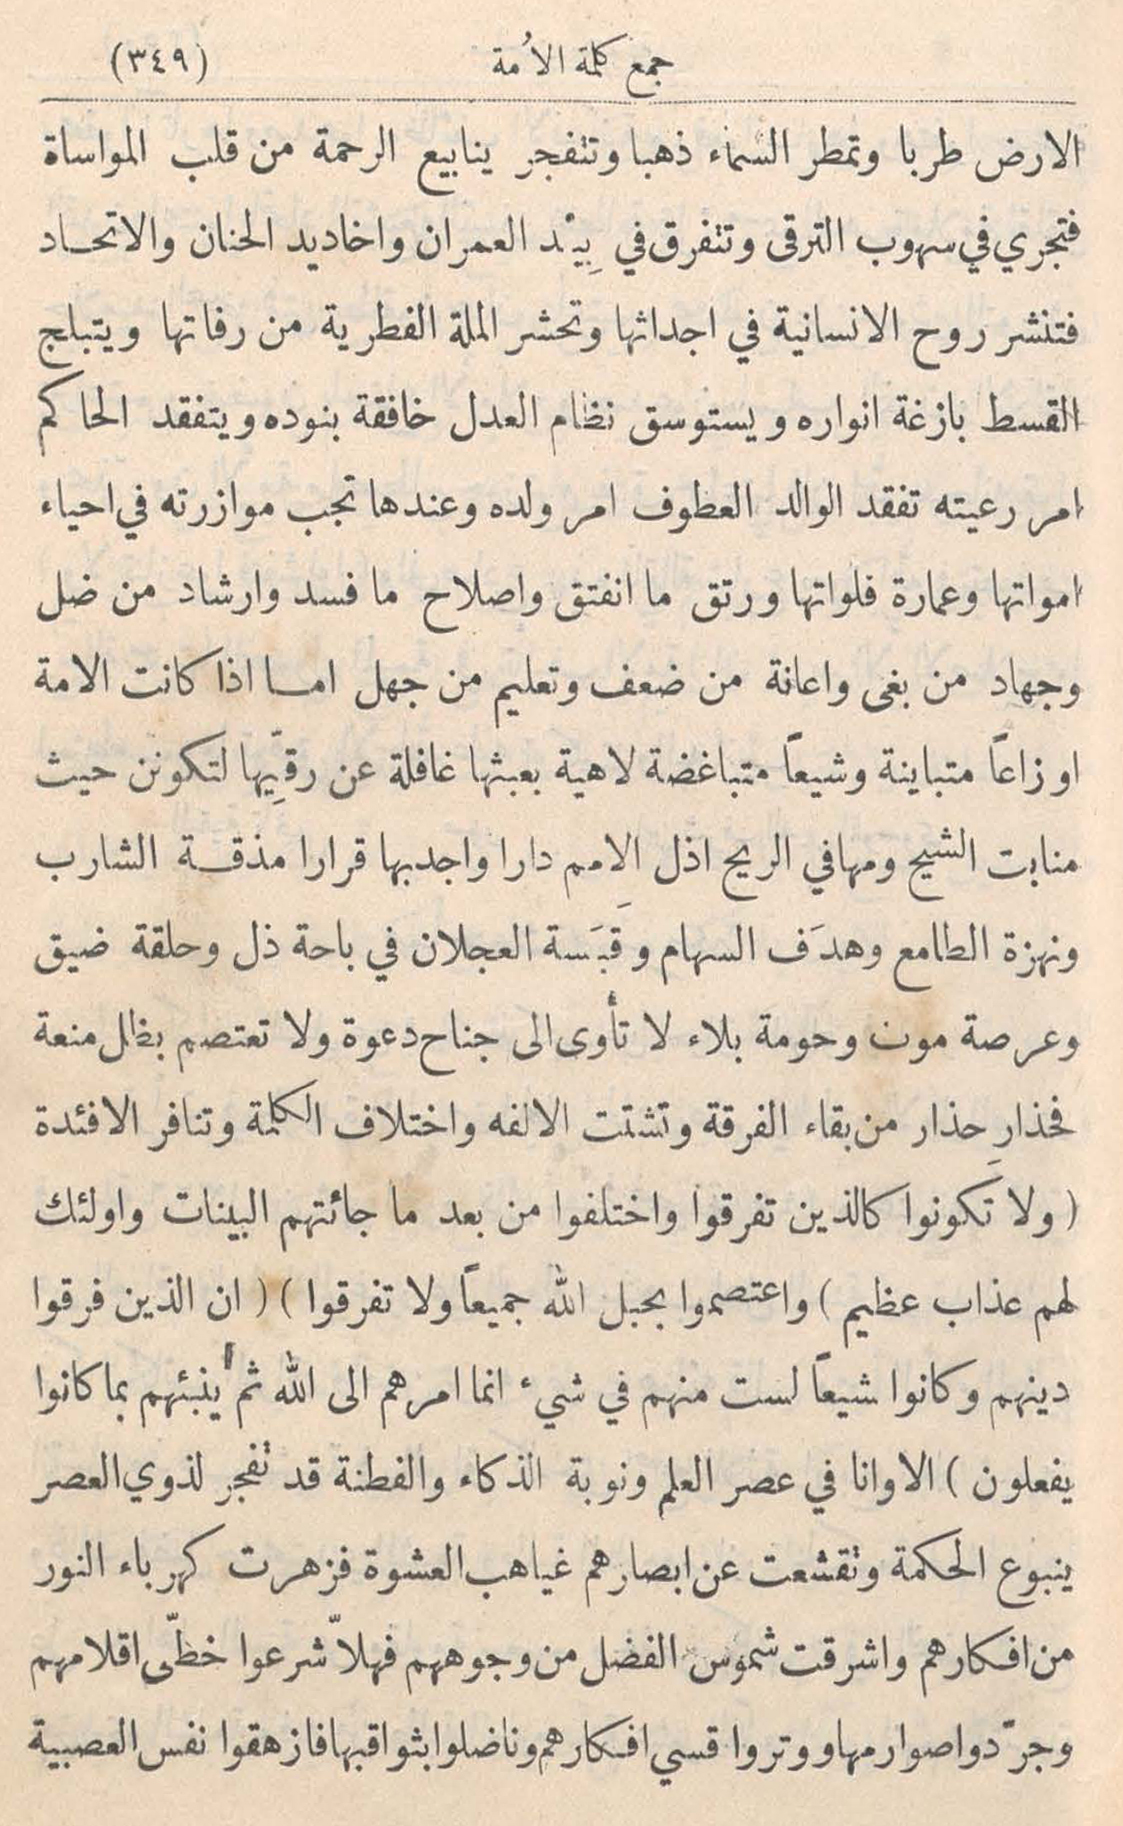 جمع كلمة الأمة (٣٤٩)
الارض طربا وتمطر السماء ذهبا وتنفجر ينابيع الرحمة من قلب المواساة
فتجري في سهوب الترقى وتتفرق في بِيْد العمران واخاديد الحنان والاتحاد
فتنشر روح الانسانية في اجداثها وتحشر الملة الفطرية من رفاتها ويتبلج
القسط بازغة انواره ويستوسق نظام العدل خافقة بنوده ويتفقد الحاكم
امر رعيته تفقد الوالد العطوف امر ولده وعندها تجب موازرته في احياء
امواتها وعمارة فلواتها ورتق ما انفتق واصلاح ما فسد وارشاد من ضل
وجهاد من بغى واعانة من ضعف وتعليم من جهل اما اذا كانت الامة
اوزاعاً متباينة وشيعاً متباغضة لاهية بعبثها غافلة عن رقيّها لتكونن حيث
منابت الشيح ومهافي الريح اذل الاِمم دارا واجدبها قرارا مذقة الشارب
ونهزة الطامع وهدَف السهام وقبَسة العجلان في باحة ذل وحلقة ضيق
وعرصة موت وحومة بلاء لا تأوى الى جناح دعوة ولا تعتصم بظل منعة
فحذارِ حذار من بقاء الفرقة وتشتت الالفه واختلاف الكلمة وتنافر الافئدة
( ولا تَكونوا كالذين تفرقوا واختلفوا من بعد ما جائتهم البينات واولئك
لهم عذاب عظيم ) واعتصموا بحبل الله جميعاً ولا تفرقوا ) ( ان الذين فرقوا
دينهم وكانوا شيعاً لست منهم في شيء انما امرهم الى الله ثم ينبئهم بما كانوا
يفعلون ) الا وانا في عصر العلم ونوبة الذكاء والفطنة قد تفجر لذوي العصر
ينبوع الحكمة وتقشعت عن ابصارهم غياهب العشوة فزهرت كهرباء النور
من افكارهم واشرقت شموس الفضل من وجوههم فهلاّ شرعوا خطّى اقلامهم
وجرّدوا صوارمها ووتروا قسي افكارهم وناضلوا بثواقبها فازهقوا نفس العصبية